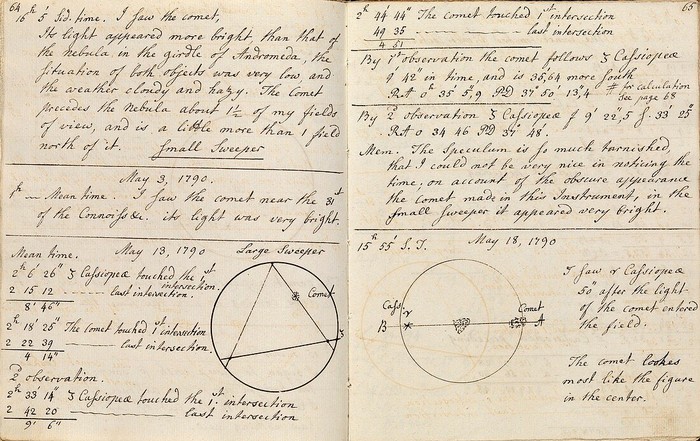 64
16ʰ 5′ Sid. time. I saw the comet,
Its light appeared more bright, than that of
the Nebula in the girdle of Andromeda, the
situation of both objects was very low and
the weather cloudy and hazy. The Comet
precedes the Nebula about 1½ of my fields
of view, and is a little more than 1 field
north of it. Small Sweeper
May 3, 1790
1ʰ — Mean time. I saw the comet near the 31ˢᵗ
of the Connoiss&c. its light was very bright.
Mean time. May 13, 1790 Large Sweeper
2ʰ 6′ 26″ ʒ Cassiopeæ touched the 1ˢᵗ intersection.
2 15 12 ------ last intersection.
8′ 46″
2ʰ 18′ 25″ The comet touched 1ˢᵗ intersection
2 22 39 ------ last intersection.
4 14″
Comet
ʒ
2ᵈ observation.
2ʰ 33′ 14″ ʒ Cassiopeæ touched the 1ˢᵗ. intersection
2 42 20 ------ last intersection
9′ 6″
65
2ʰ 44′ 44″ The comet touched 1ˢᵗ intersection
49 35 ------ last intersection
4 51
By 1ˢᵗ observation the comet follows ʒ Cassiopeæ
42 in time, and is 35,64 more south
RA 0ʰ 35′ 5″,9 PD 37° 50′ 13″,4 # for calculation
See page 68
By 2ᵈ observation ʒ Cassiopeæ f 9′ 22″,5 S. 33′ 25″
RA 0 34 46 PD 37° 48′.
Mem. The Speculum is so much tarnished,
that I could not be very nice in noticing the
time, on account of the obscure appearance
the comet made in this Instrument, in the
small sweeper it appeared very bright.
15ʰ 55′ S.T. May 18, 1790
Cass. γ
B
Comet
A
I saw γ Cassiopeæ
50″ after the light
of the comet entered
the field.
The comet lookes
most like the figure
in the center.